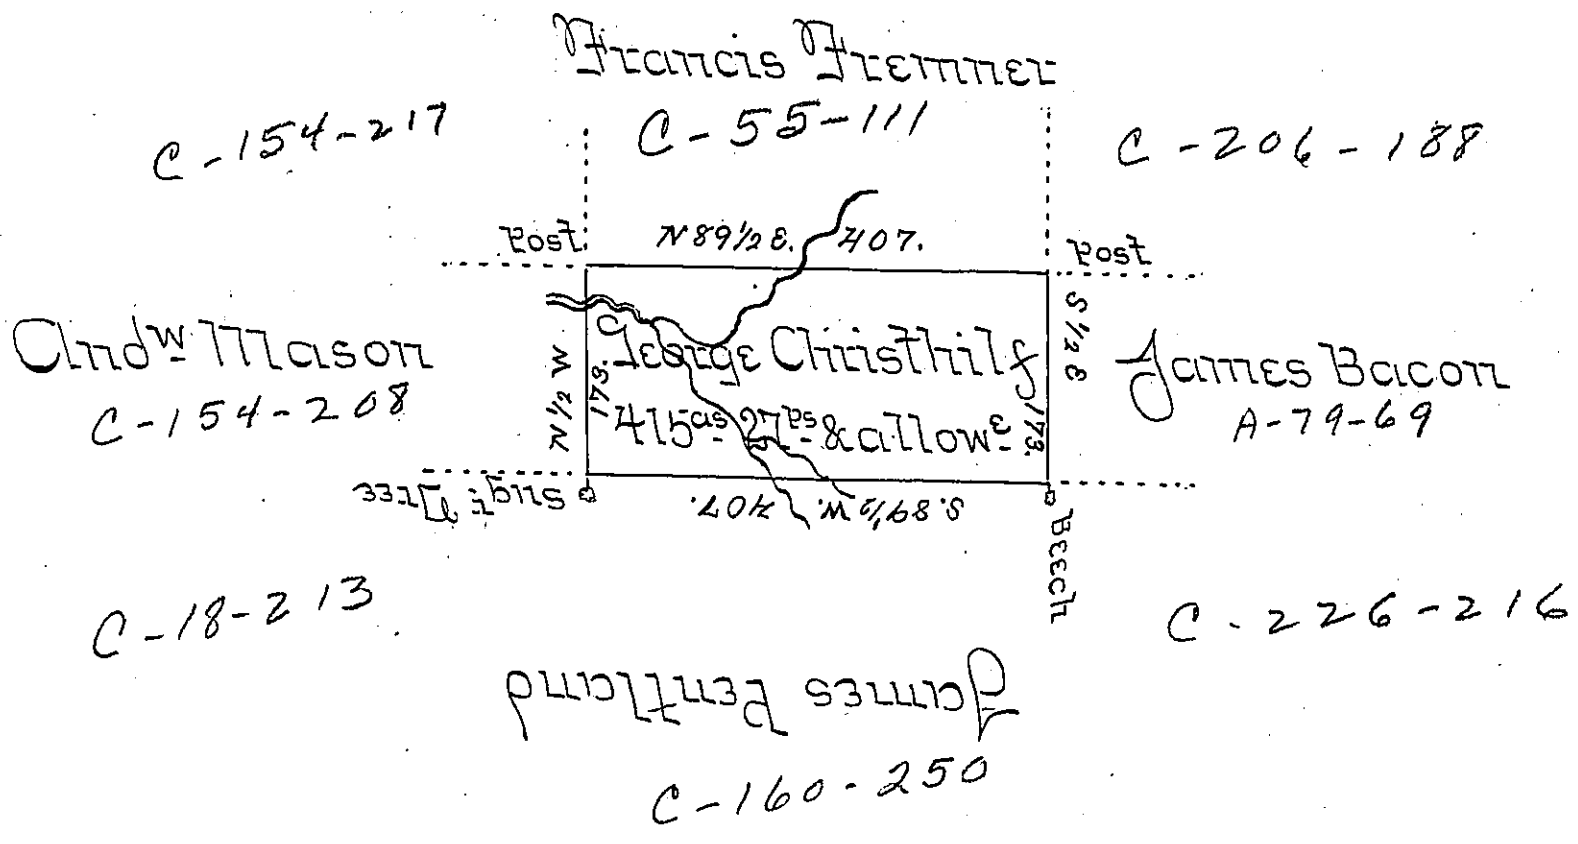 Francis Fremner
C-154-217
C-55-111
C-206-188
Post
N 89 1/2 E. 407.
Post
Andw Mason
C-154-208
N 1/2 W
173.
George Christhilf
415as 27ps & allowe
173.
S 1/2 E
James Bacon
A-79-69
Sugr Tree
S. 89 1/2 W. 407.
Beech
C-18-213
C-226-216
James Pentland
C-160-250